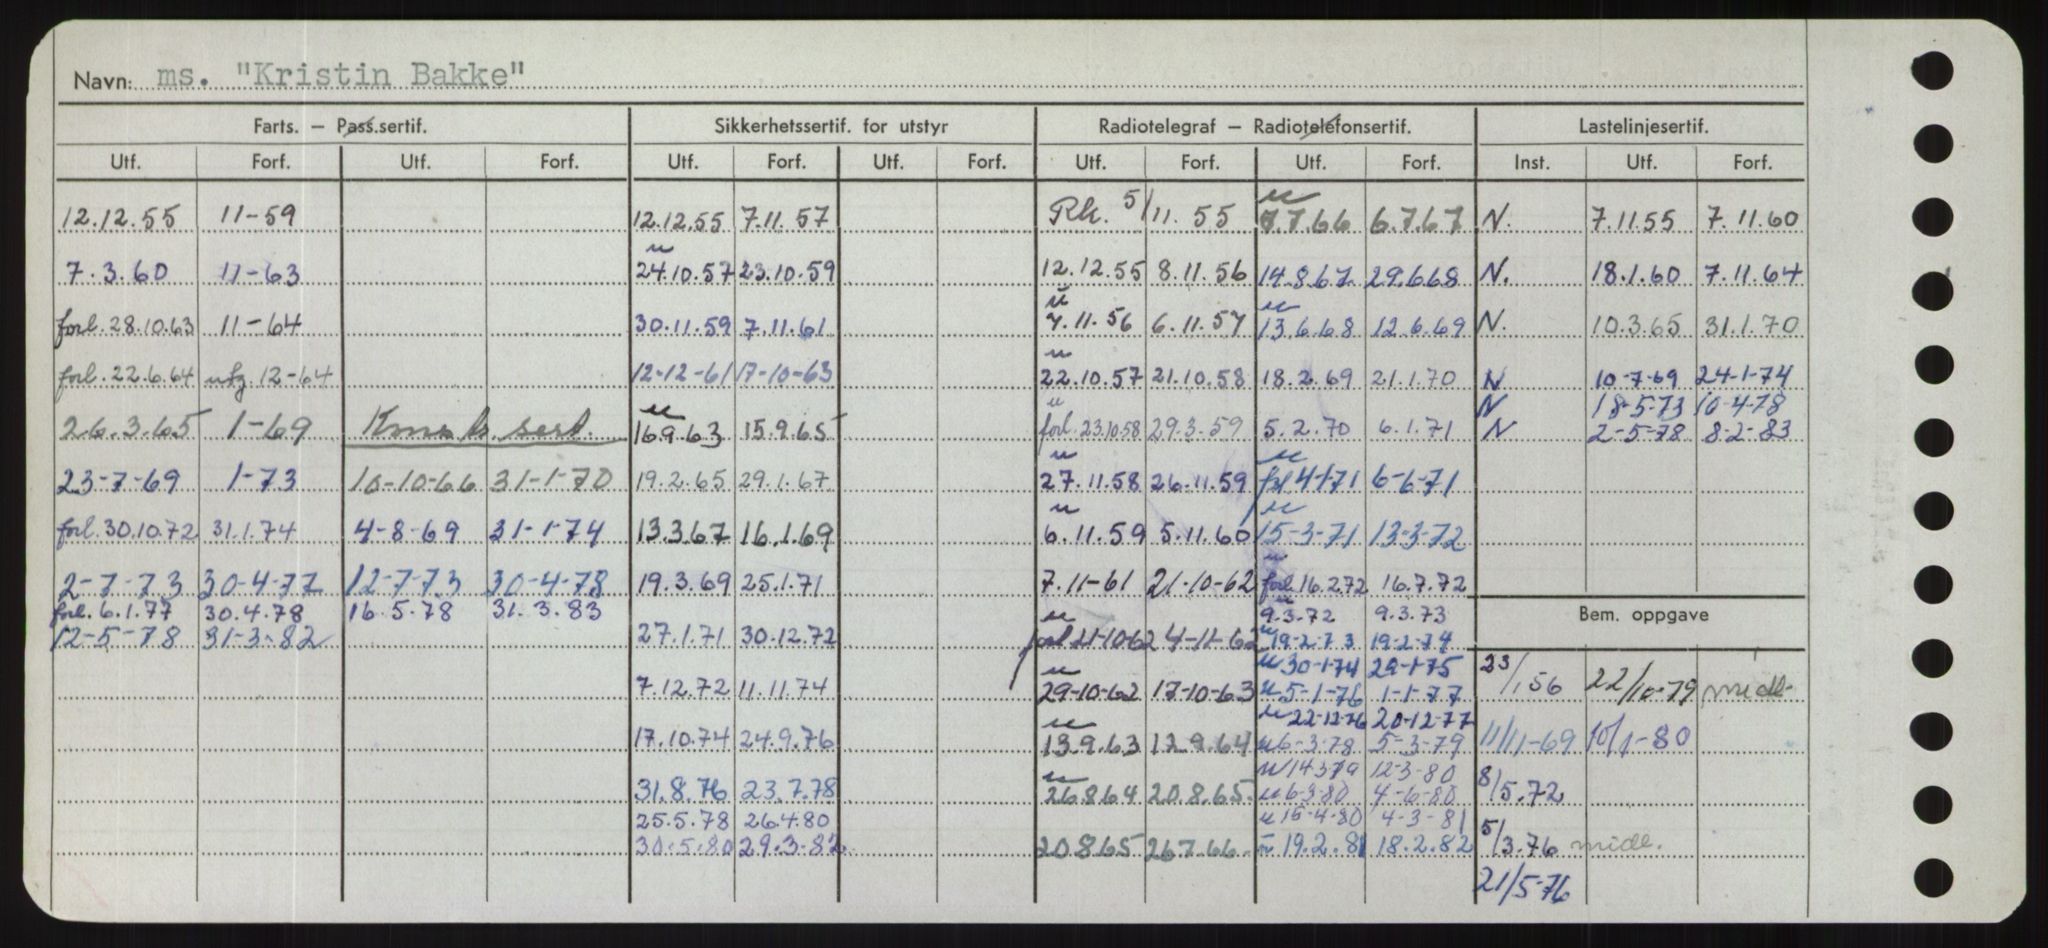 Navn: ms. "Kristin Bakke"
Farts. – Pass.sertif. Sikkerhetssertif. for utstyr Radiotelegraf – Radiotelefonsertif. Lastelinjesertif.
Utf. Forf. Utf. Forf. Utf. Forf. Utf. Forf. Utf. Forf. Utf. Forf. Inst. Utf. Forf.
12.12.55 11-59 12.12.55 7.11.57 Rk. 5/11.55 u 7.7.66 6.7.67 N. 7.11.55 7.11.60
7.3.60 11-63 u 24.10.57 23.10.59 12.12.55 8.11.56 14.8.67 29.6.68 N. 18.1.60 7.11.64
forl. 28.10.63 11-64 30.11.59 7.11.61 u 7.11.56 6.11.57 u 13.6.68 12.6.69 N. 10.3.65 31.1.70
forl. 22.6.64 utg. 12-64 12-12-61 17-10-63 u 22.10.57 21.10.58 18.2.69 21.1.70 N 10-7-69 24-1-74
N 18-5-73 10-4-78
26.3.65 1-69 sert. u 16.9.63 15.9.65 u forl. 23.10.58 29.3.59 5.2.70 6.1.71 N 2-5-78 8-2-83
23-7-69 1-73 10-10-66 31-1-70 19.2.65 29.1.67 u 27.11.58 26.11.59 u forl 4-1-71 6-6-71
forl. 30.10.72 31.1.74 4-8-69 31-1-74 13.3.67 16.1.69 u 6.11.59 5.11.60 u 15-3-71 13-3-72
2-7-73 30-4-77 12-7-73 30-4-78 19.3.69 25.1.71 7.11-61 21-10-62 u forl. 16.2.72 16.7.72
forl. 6.1.77 30.4.78 16.5.78 31.3.83 u 9.3.72 9.3.73 Bem. oppgave
12-5-78 31-3-82 27.1.71 30.12.72 u forl 21-10-62 4-11-62 u 19-2-73 19-2-74
u 30-1-74 29-1-75 23/1.56 22/10-79 midl.
7.12.72 11.11.74 u 29-10-62 17-10-63 u 5-1-76 1-1-77
u 22-12-76 20-12-77
17.10.74 24.9.76 u 13.9.63 12.9.64 u 6-3-78 5-3-79 11/11-69 10/1-80
u 14.3.79 12-3-80
31.8.76 23.7.78 u 26.8.64 20.8.65. u 6-3-80 4-6-80 8/5.72
25.5.78 26.4.80 u 15-4-80 4-3-81
30.5.80 29.3.82 20.8.65 26.7.66. 19.2.81 18.2.82 5/3.76 midl.
21/5-76